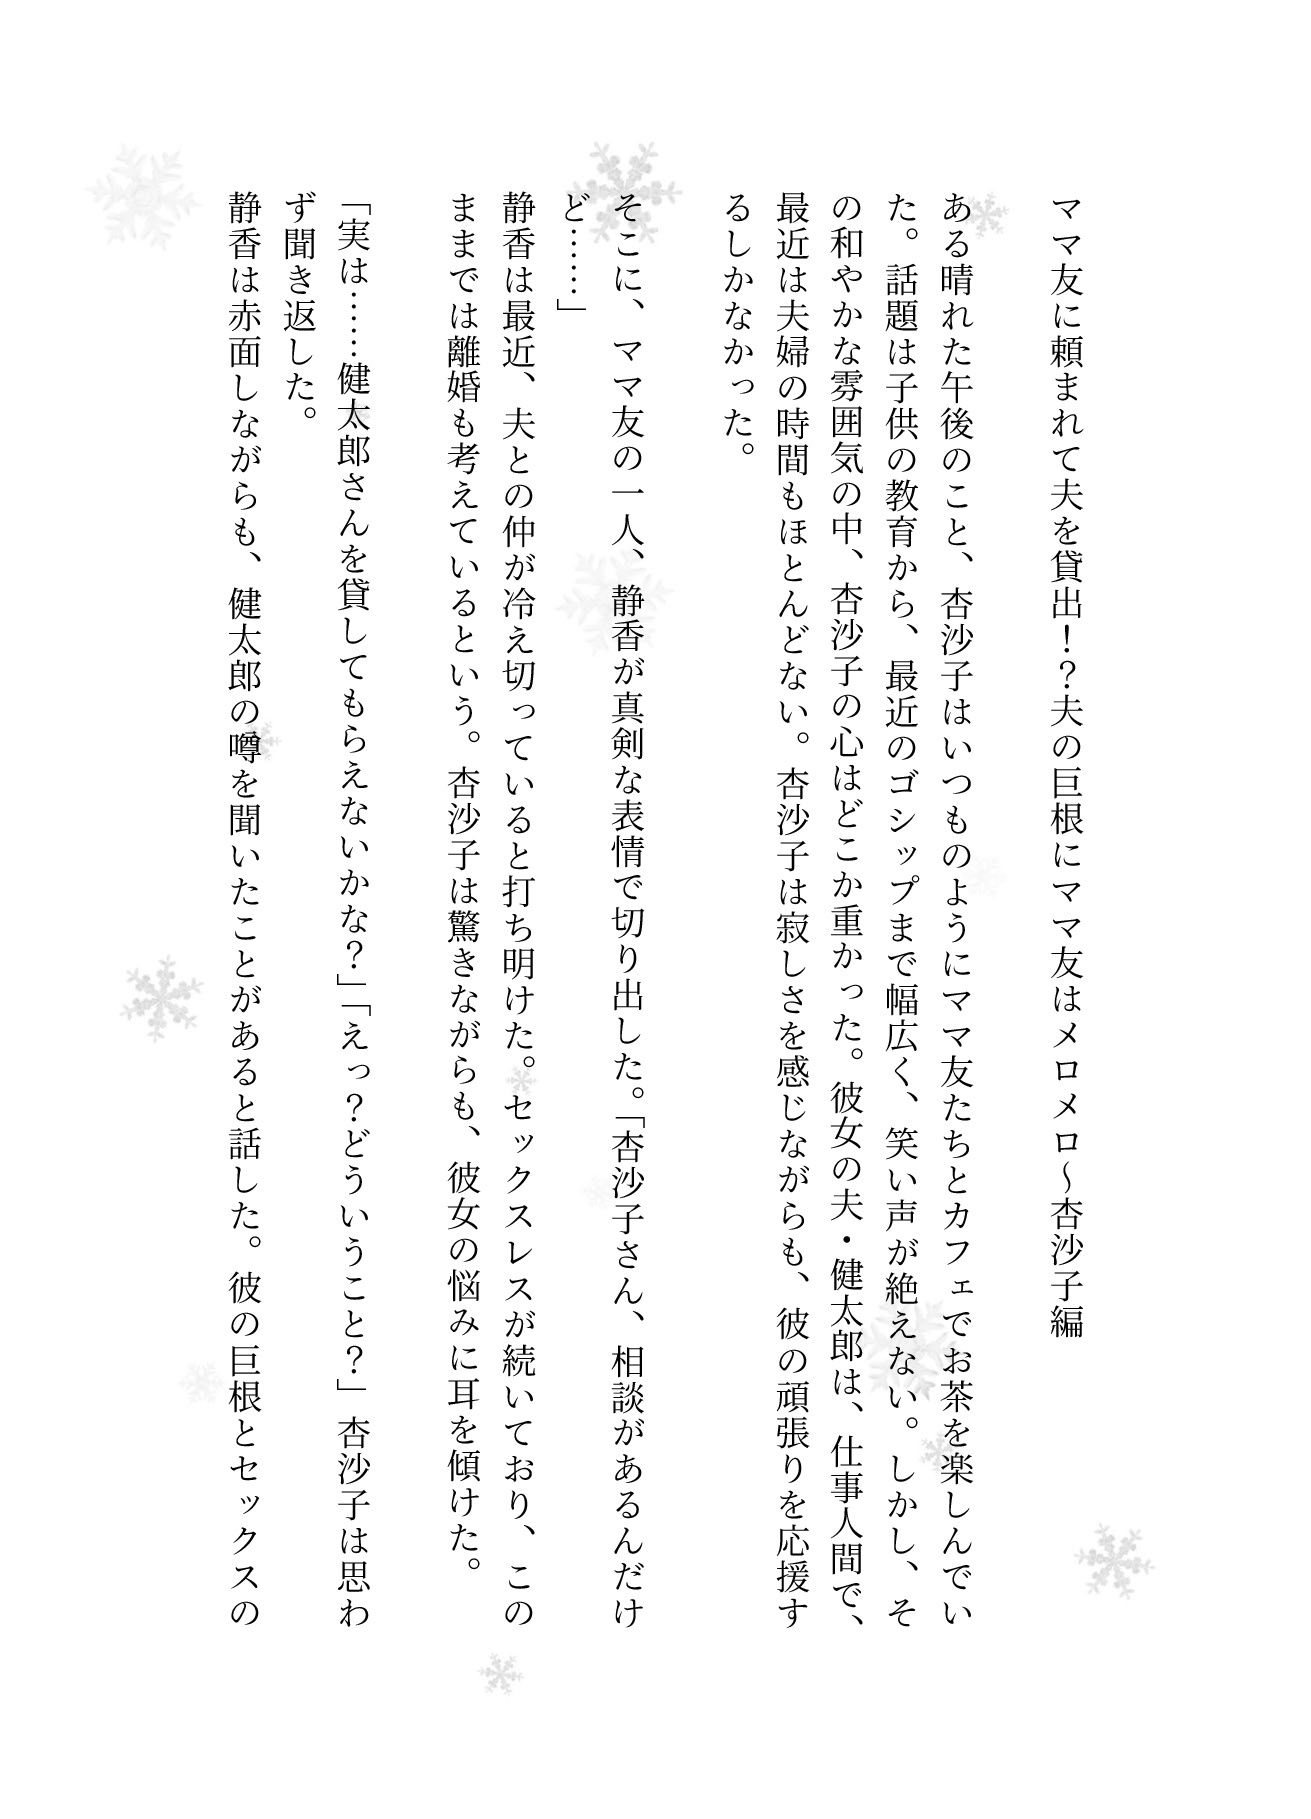 ママ友に頼まれて夫を貸出！？夫の巨根にママ友はメロメロ～杏沙子編
ある晴れた午後のこと、杏沙子はいつものようにママ友たちとカフェでお茶を楽しんでい
た。話題は子供の教育から、最近のゴシップまで幅広く、笑い声が絶えない。しかし、そ
の和やかな雰囲気の中、杏沙子の心はどこか重かった。彼女の夫・健太郎は、仕事人間で、
最近は夫婦の時間もほとんどない。杏沙子は寂しさを感じながらも、彼の頑張りを応援す
るしかなかった。
そこに、ママ友の一人、静香が真剣な表情で切り出した。「杏沙子さん、相談があるんだけ
ど……」
静香は最近、夫との仲が冷え切っていると打ち明けた。セックスレスが続いており、この
ままでは離婚も考えているという。杏沙子は驚きながらも、彼女の悩みに耳を傾けた。
「実は……健太郎さんを貸してもらえないかな？」「えっ？どういうこと？」杏沙子は思わ
ず聞き返した。
静香は赤面しながらも、健太郎の噂を聞いたことがあると話した。彼の巨根とセックスの